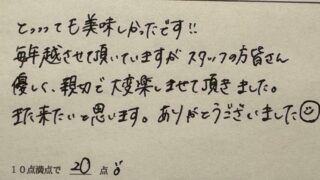 とっっっても美味しかったです!!
毎年越させて頂いていますが スタッフの方皆さん
優しく、親切で大変楽しませて頂きました。
また来たいと思います。ありがとうございました☺
10点満点で 20 点